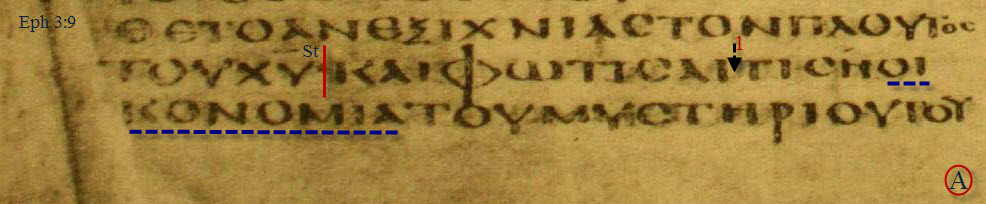 Eph 3:9
ΘΕΤΟΑΝΕΞΙΧΝΙΑϹΤΟΝΠΛΟΥΤοϲ
St 1
ΤΟΥΧΥΚΑΙΦΩΤΙϹΑΙΤΙϹΗΟΙ
ΚΟΝΟΜΙΑΤΟΥΜΥϹΤΗΡΙΟΥΤΟΥ
A